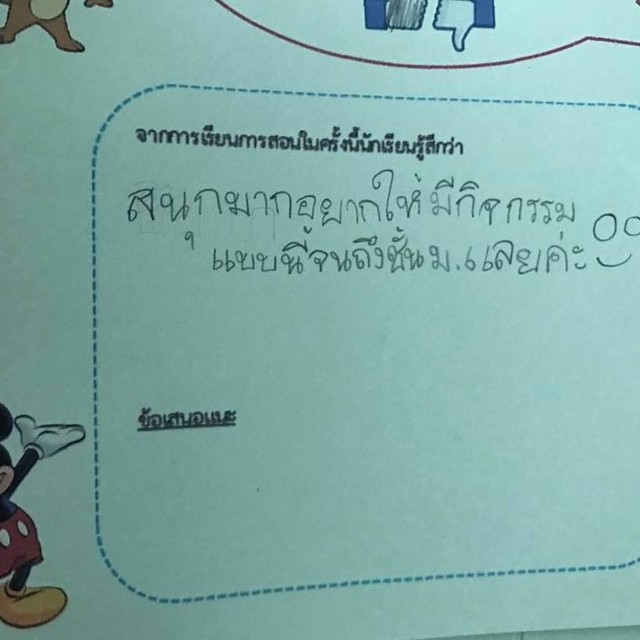 จากการเรียนการสอนในครั้งนี้นักเรียนรู้สึกว่า
สนุกมากอยากให้มีกิจกรรม
แบบนี้จนถึงชั้นม.เลยค่ะ
ข้อเสนอแนะ